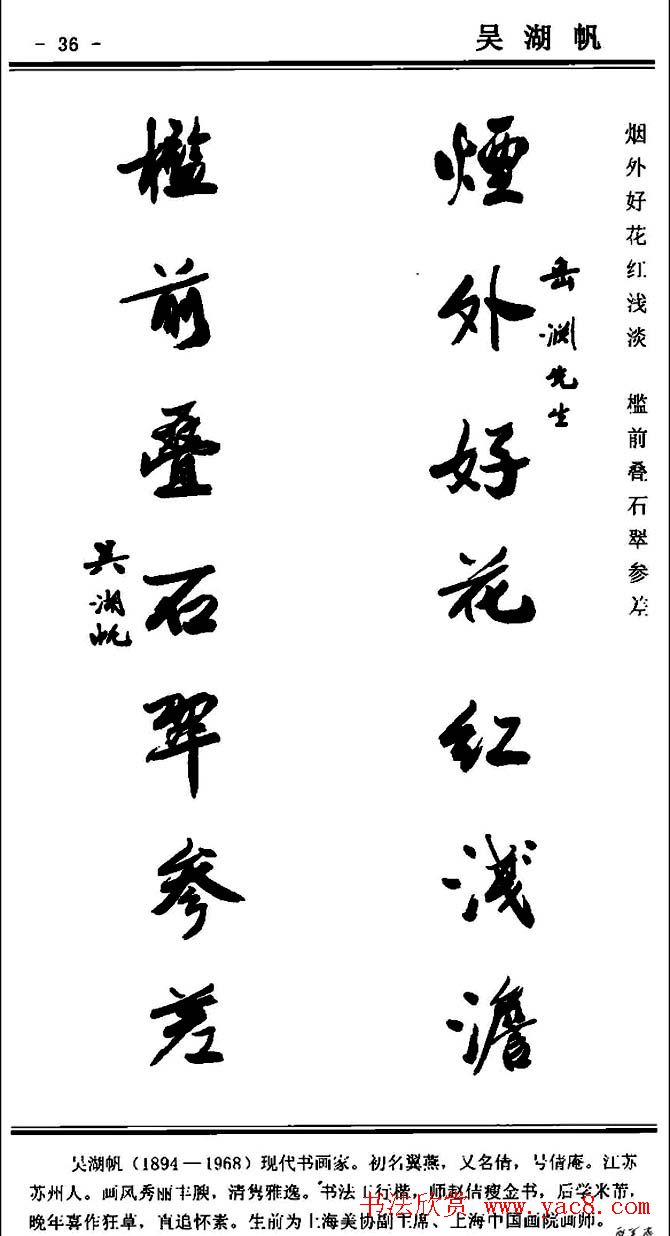 - 36 -
吴湖帆
烟外好花红浅淡 槛前叠石翠参差
岳渊先生
煙外好花紅淺澹
檻前叠石翠參差
吴湖帆
吴湖帆（1894－1968）现代书画家。初名翼燕，又名倩，号倩庵。江苏
苏州人。画风秀丽丰腴，清隽雅逸。书法工行楷，师赵佶瘦金书，后学米芾，
晚年喜作狂草，直追怀素。生前为上海美协副主席、上海中国画院画师。
书法欣赏 www.yac8.com